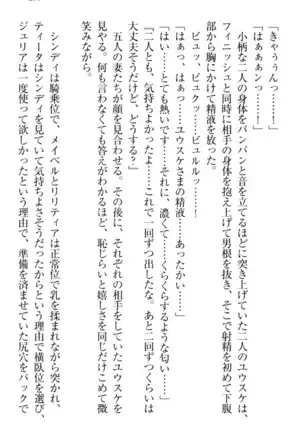 「きゃううんっ……！」
「はぁぁぁンっ……！」
小柄な二人の身体をパンパンと音を立てるほどに突き上げていた二人のユウスケは、
フィニッシュと同時に相手の身体を抱え上げて男根を抜き、そこで射精を初めて下腹
部から胸にかけて精液を放った。
ビュッ、ビュクッ……！　ビュルルッ……！
「はぁっ、はぁっ……ユウスケさまの精液、あたたかい……」
「はい……とても熱いです……それに、濃くて……くらくらするような匂い……」
「二人とも、気持ちよかったよ……これで一回ずつ出したな。あと二回ずつくらいは
大丈夫そうだけど、どうする？」
五人の妻たちが顔を見合わせる。その後に、それぞれの相手をしていたユウスケを
見やる。何も言わなくても答えがわかるほど、恥じらいと嬉しさを同じだけこめて微
笑みながら。
シンディは騎乗位で、メイベルとリリティアは正常位で乳を揉まれながら突かれ、
ティータはシンディを見ていて気持ちよさそうだったからという理由で横臥位を選び、
ジュリアは一度使って欲しかったという理由で、準備を済ませていた尻穴をバックで